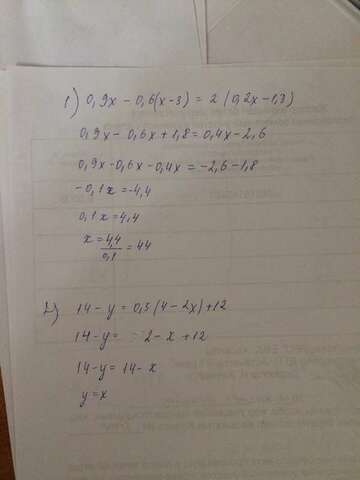 1) 0,9x - 0,6(x-3) = 2(0,2x-1,3)
0,9x - 0,6x + 1,8 = 0,4x - 2,6
0,9x - 0,6x - 0,4x = -2,6 - 1,8
-0,1x = -4,4
0,1x = 4,4
x = 4,4/0,1 = 44
2) 14 - y = 0,5(4-2x) + 12
14 - y = 2 - x + 12
14 - y = 14 - x
y = x